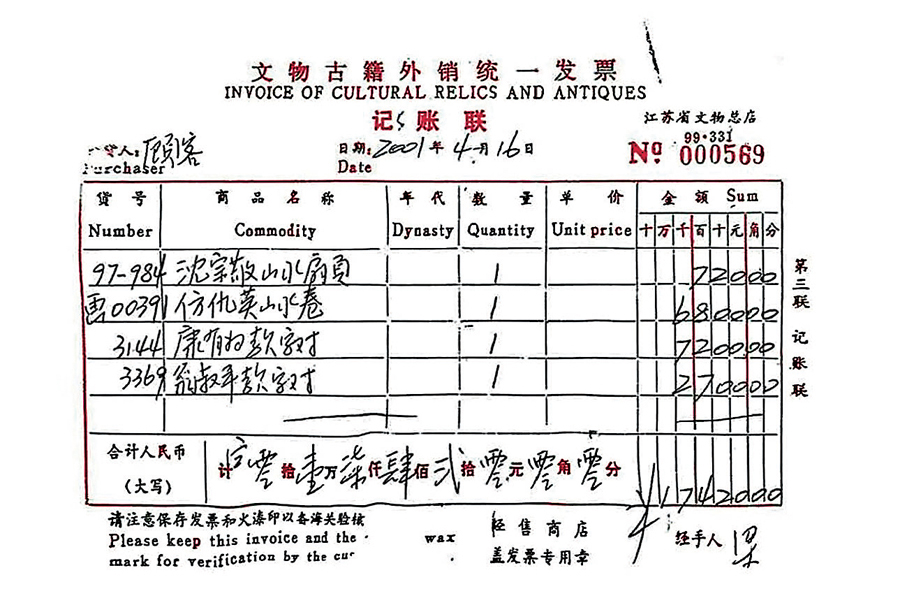 文物古籍外销统一发票
INVOICE OF CULTURAL RELICS AND ANTIQUES
记账联
江苏省文物总店
99·331
货人：顾客 日期：2001年4月16日 Nº 000569
Purchaser Date
货号 商品名称 年代 数量 单价 金额 Sum
Number Commodity Dynasty Quantity Unit price 十万千百十元角分
97-984 沈宗敬山水扇页 1 72000
画00391 仿仇英山水卷 1 680000
3144 康有为款字对 1 720000
3369 翁叔平款字对 1 270000
合计人民币（大写） 计 零拾壹万柒仟肆佰贰拾零元零角零分 ¥1742000
请注意保存发票和火漆印以备海关验核 经售商店 经手人 梁
Please keep this invoice and the wax
mark for verification by the cu 盖发票专用章
第三联 记账联